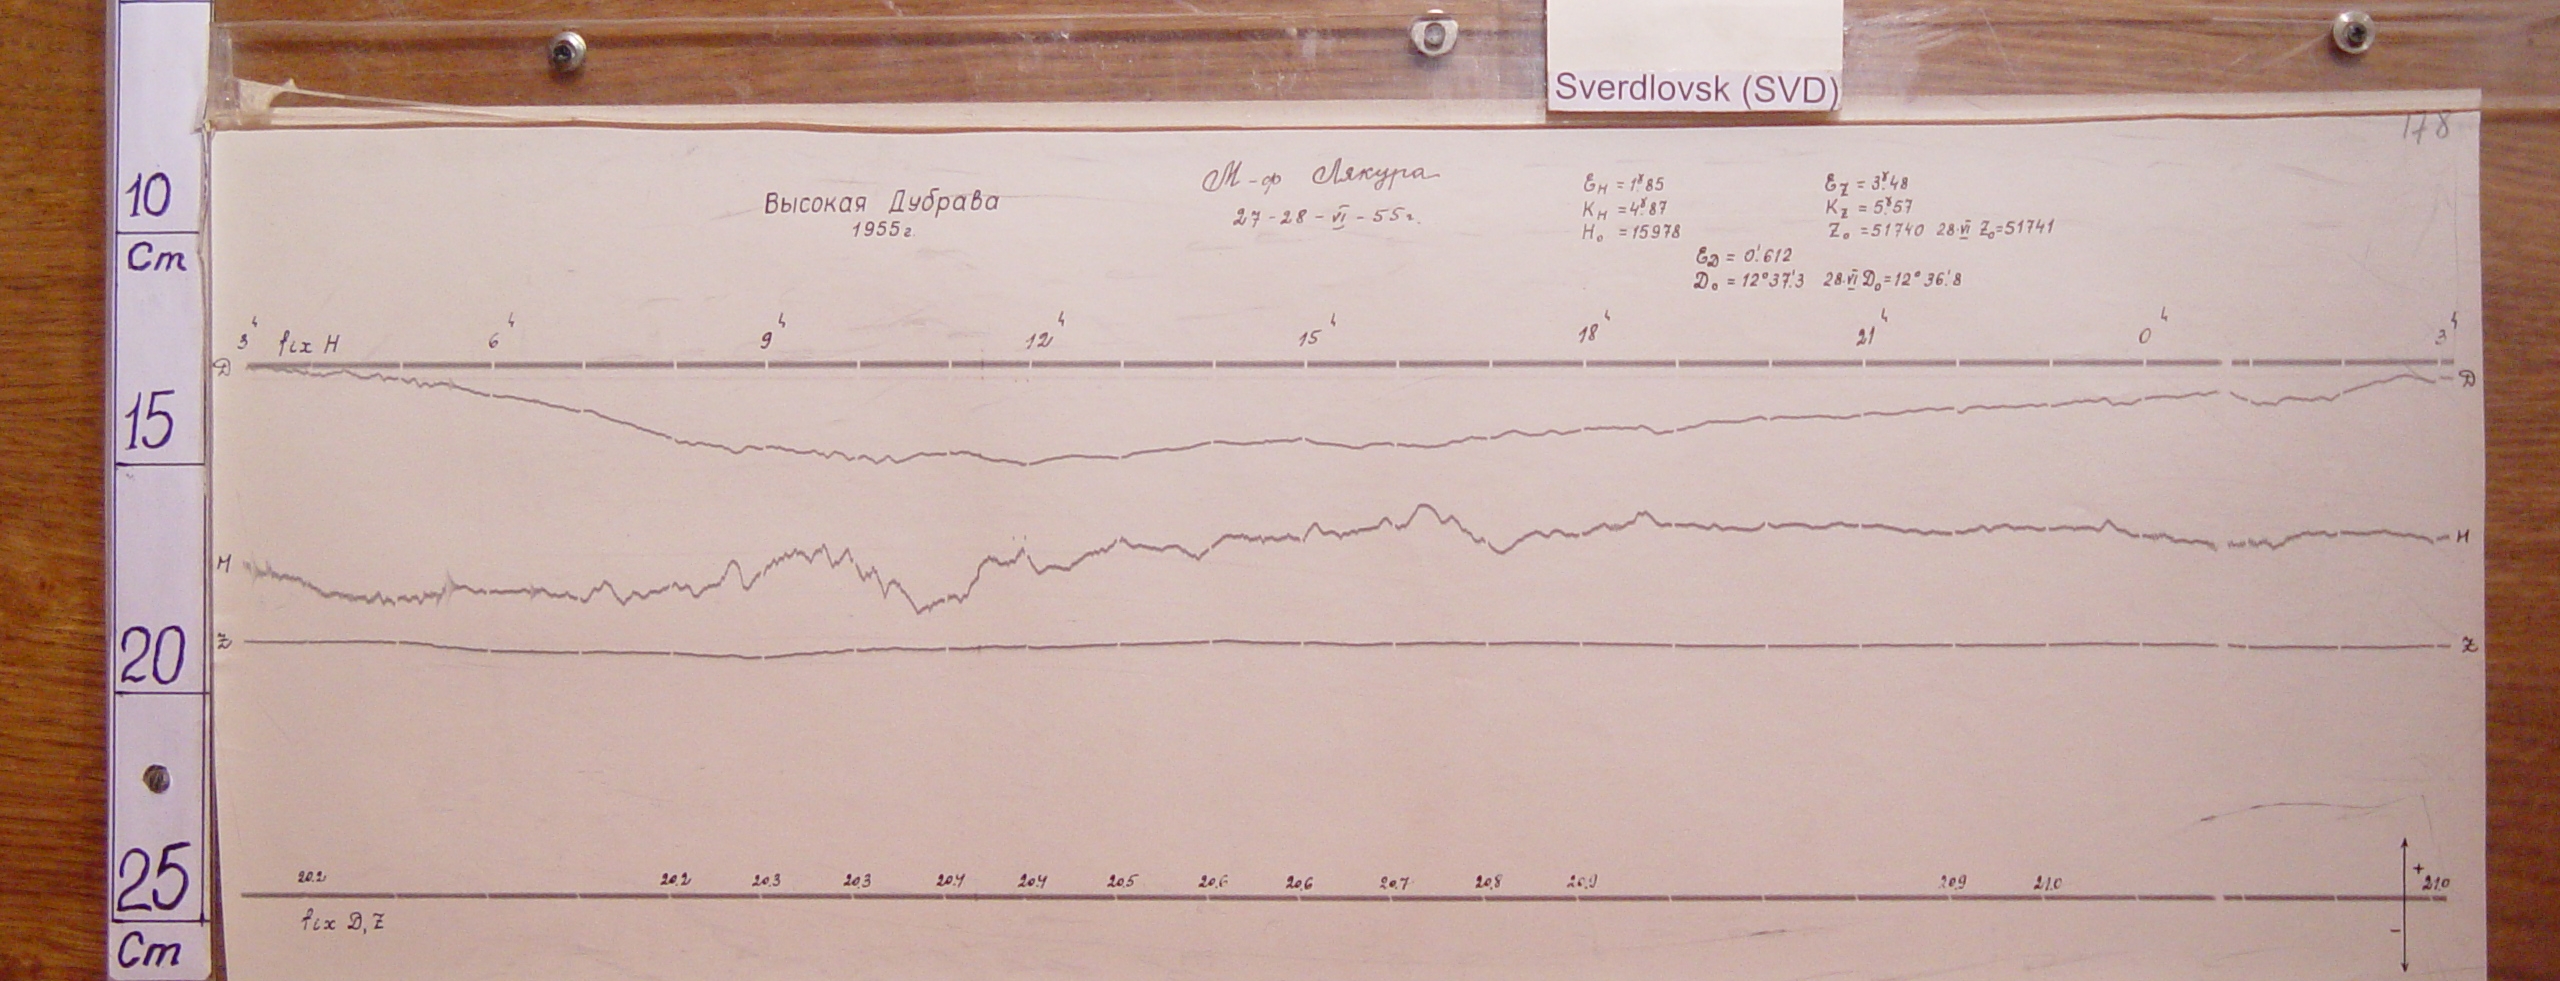 Sverdlovsk (SVD)
178
10
Cm
15
20
25
Cm
Высокая Дубрава
1955г.
М-ф Лякура
27-28-VI-55г.
εH = 1ˠ.85
KH = 4ˠ.87
H₀ = 15978
εZ = 3ˠ.48
KZ = 5ˠ.57
Z₀ = 51740 28.VI Z₀=51741
εD = 0'.612
D₀ = 12°37'.3 28.VI D₀=12°36'.8
3ʰ fix H 6ʰ 9ʰ 12ʰ 15ʰ 18ʰ 21ʰ 0ʰ 3ʰ
D D
H H
Z Z
20.2 20.2 20.3 20.3 20.4 20.4 20.5 20.6 20.6 20.7 20.8 20.9 20.9 21.0 21.0
fix D, Z
+
-